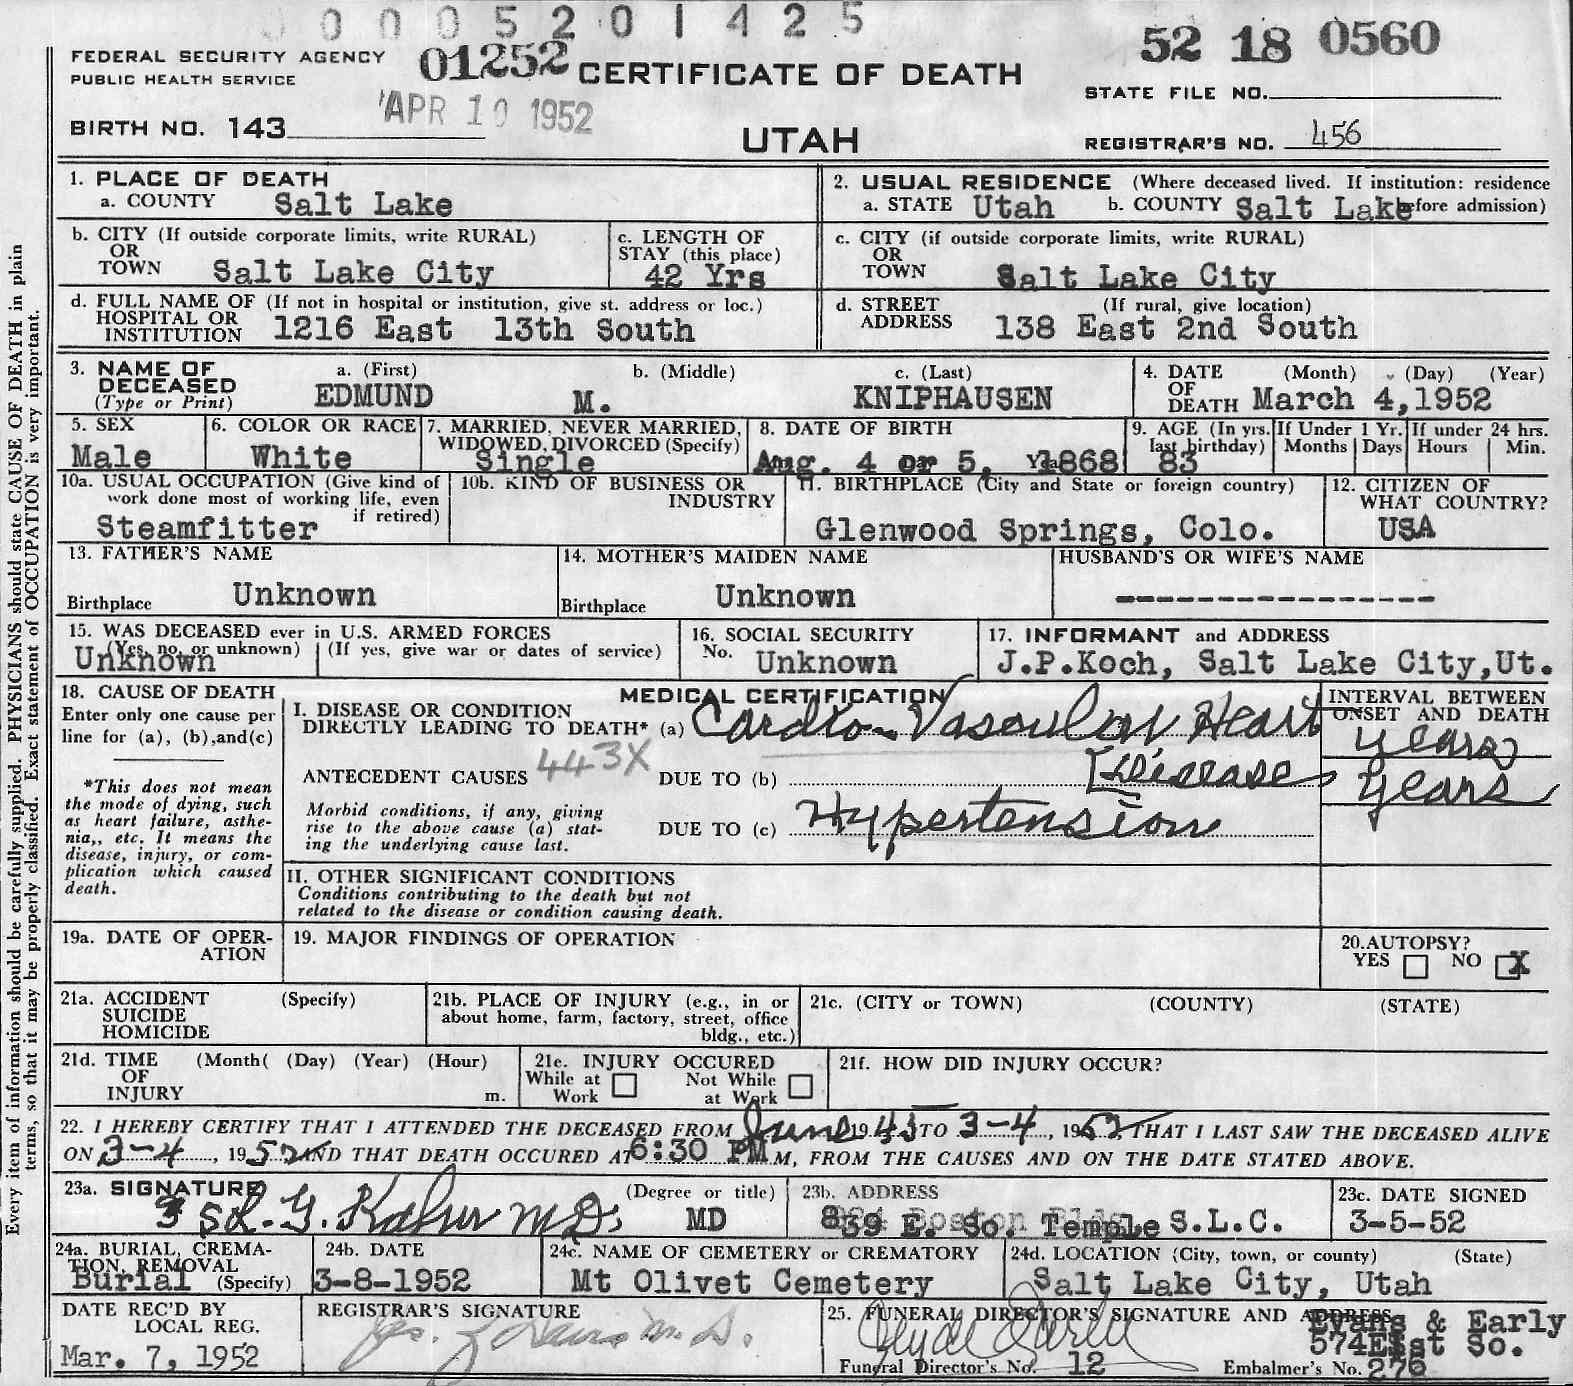 0005201425
FEDERAL SECURITY AGENCY
PUBLIC HEALTH SERVICE
01252 CERTIFICATE OF DEATH
52 18 0560
STATE FILE NO.
APR 10 1952
BIRTH NO. 143
UTAH
REGISTRAR'S NO. 456
Every item of information should be carefully supplied. PHYSICIANS should state CAUSE OF DEATH in plain
terms, so that it may be properly classified. Exact statement of OCCUPATION is very important.
1. PLACE OF DEATH
a. COUNTY Salt Lake
2. USUAL RESIDENCE (Where deceased lived. If institution: residence
a. STATE Utah b. COUNTY Salt Lake before admission)
b. CITY (If outside corporate limits, write RURAL)
OR
TOWN Salt Lake City
c. LENGTH OF
STAY (this place)
42 Yrs
c. CITY (if outside corporate limits, write RURAL)
OR
TOWN Salt Lake City
d. FULL NAME OF (If not in hospital or institution, give st. address or loc.)
HOSPITAL OR
INSTITUTION 1216 East 13th South
d. STREET (If rural, give location)
ADDRESS 138 East 2nd South
3. NAME OF
DECEASED
(Type or Print)
a. (First) b. (Middle) c. (Last)
EDMUND M. KNIPHAUSEN
4. DATE (Month) (Day) (Year)
OF
DEATH March 4,1952
5. SEX
Male
6. COLOR OR RACE
White
7. MARRIED, NEVER MARRIED,
WIDOWED, DIVORCED (Specify)
Single
8. DATE OF BIRTH
Aug. 4 or 5, 1868
9. AGE (In yrs.
last birthday)
83
If Under 1 Yr.
Months Days
If under 24 hrs.
Hours Min.
10a. USUAL OCCUPATION (Give kind of
work done most of working life, even
if retired)
Steamfitter
10b. KIND OF BUSINESS OR
INDUSTRY
11. BIRTHPLACE (City and State or foreign country)
Glenwood Springs, Colo.
12. CITIZEN OF
WHAT COUNTRY?
USA
13. FATHER'S NAME
Birthplace Unknown
14. MOTHER'S MAIDEN NAME
Birthplace Unknown
HUSBAND'S OR WIFE'S NAME
----------------
15. WAS DECEASED ever in U.S. ARMED FORCES
(Yes, no, or unknown) (If yes, give war or dates of service)
Unknown
16. SOCIAL SECURITY
No. Unknown
17. INFORMANT and ADDRESS
J.P.Koch, Salt Lake City,Ut.
18. CAUSE OF DEATH
Enter only one cause per
line for (a), (b),and(c)
*This does not mean
the mode of dying, such
as heart failure, asthe-
nia,, etc. It means the
disease, injury, or com-
plication which caused
death.
MEDICAL CERTIFICATION
I. DISEASE OR CONDITION
DIRECTLY LEADING TO DEATH* (a) Cardio-Vascular Heart
443X
ANTECEDENT CAUSES DUE TO (b) Disease
Morbid conditions, if any, giving
rise to the above cause (a) stat-
ing the underlying cause last.
DUE TO (c) Hypertension
INTERVAL BETWEEN
ONSET AND DEATH
years
years
II. OTHER SIGNIFICANT CONDITIONS
Conditions contributing to the death but not
related to the disease or condition causing death.
19a. DATE OF OPER-
ATION
19. MAJOR FINDINGS OF OPERATION
20.AUTOPSY?
YES NO X
21a. ACCIDENT (Specify)
SUICIDE
HOMICIDE
21b. PLACE OF INJURY (e.g., in or
about home, farm, factory, street, office
bldg., etc.)
21c. (CITY or TOWN) (COUNTY) (STATE)
21d. TIME (Month( (Day) (Year) (Hour)
OF
INJURY m.
21e. INJURY OCCURED
While at Work
Not While at Work
21f. HOW DID INJURY OCCUR?
22. I HEREBY CERTIFY THAT I ATTENDED THE DECEASED FROM June 1945 TO 3-4, 1952, THAT I LAST SAW THE DECEASED ALIVE
ON 3-4, 1952 AND THAT DEATH OCCURED AT 6:30 PM M, FROM THE CAUSES AND ON THE DATE STATED ABOVE.
23a. SIGNATURE (Degree or title)
M.D. MD
23b. ADDRESS
839 E. So. Temple S.L.C.
23c. DATE SIGNED
3-5-52
24a. BURIAL, CREMA-
TION, REMOVAL
Burial (Specify)
24b. DATE
3-8-1952
24c. NAME OF CEMETERY or CREMATORY
Mt Olivet Cemetery
24d. LOCATION (City, town, or county) (State)
Salt Lake City, Utah
DATE REC'D BY
LOCAL REG.
Mar. 7, 1952
REGISTRAR'S SIGNATURE
M.D.
25. FUNERAL DIRECTOR'S SIGNATURE AND ADDRESS
Clyde Early
Evans & Early
574 East So.
Funeral Director's No. 12
Embalmer's No. 276